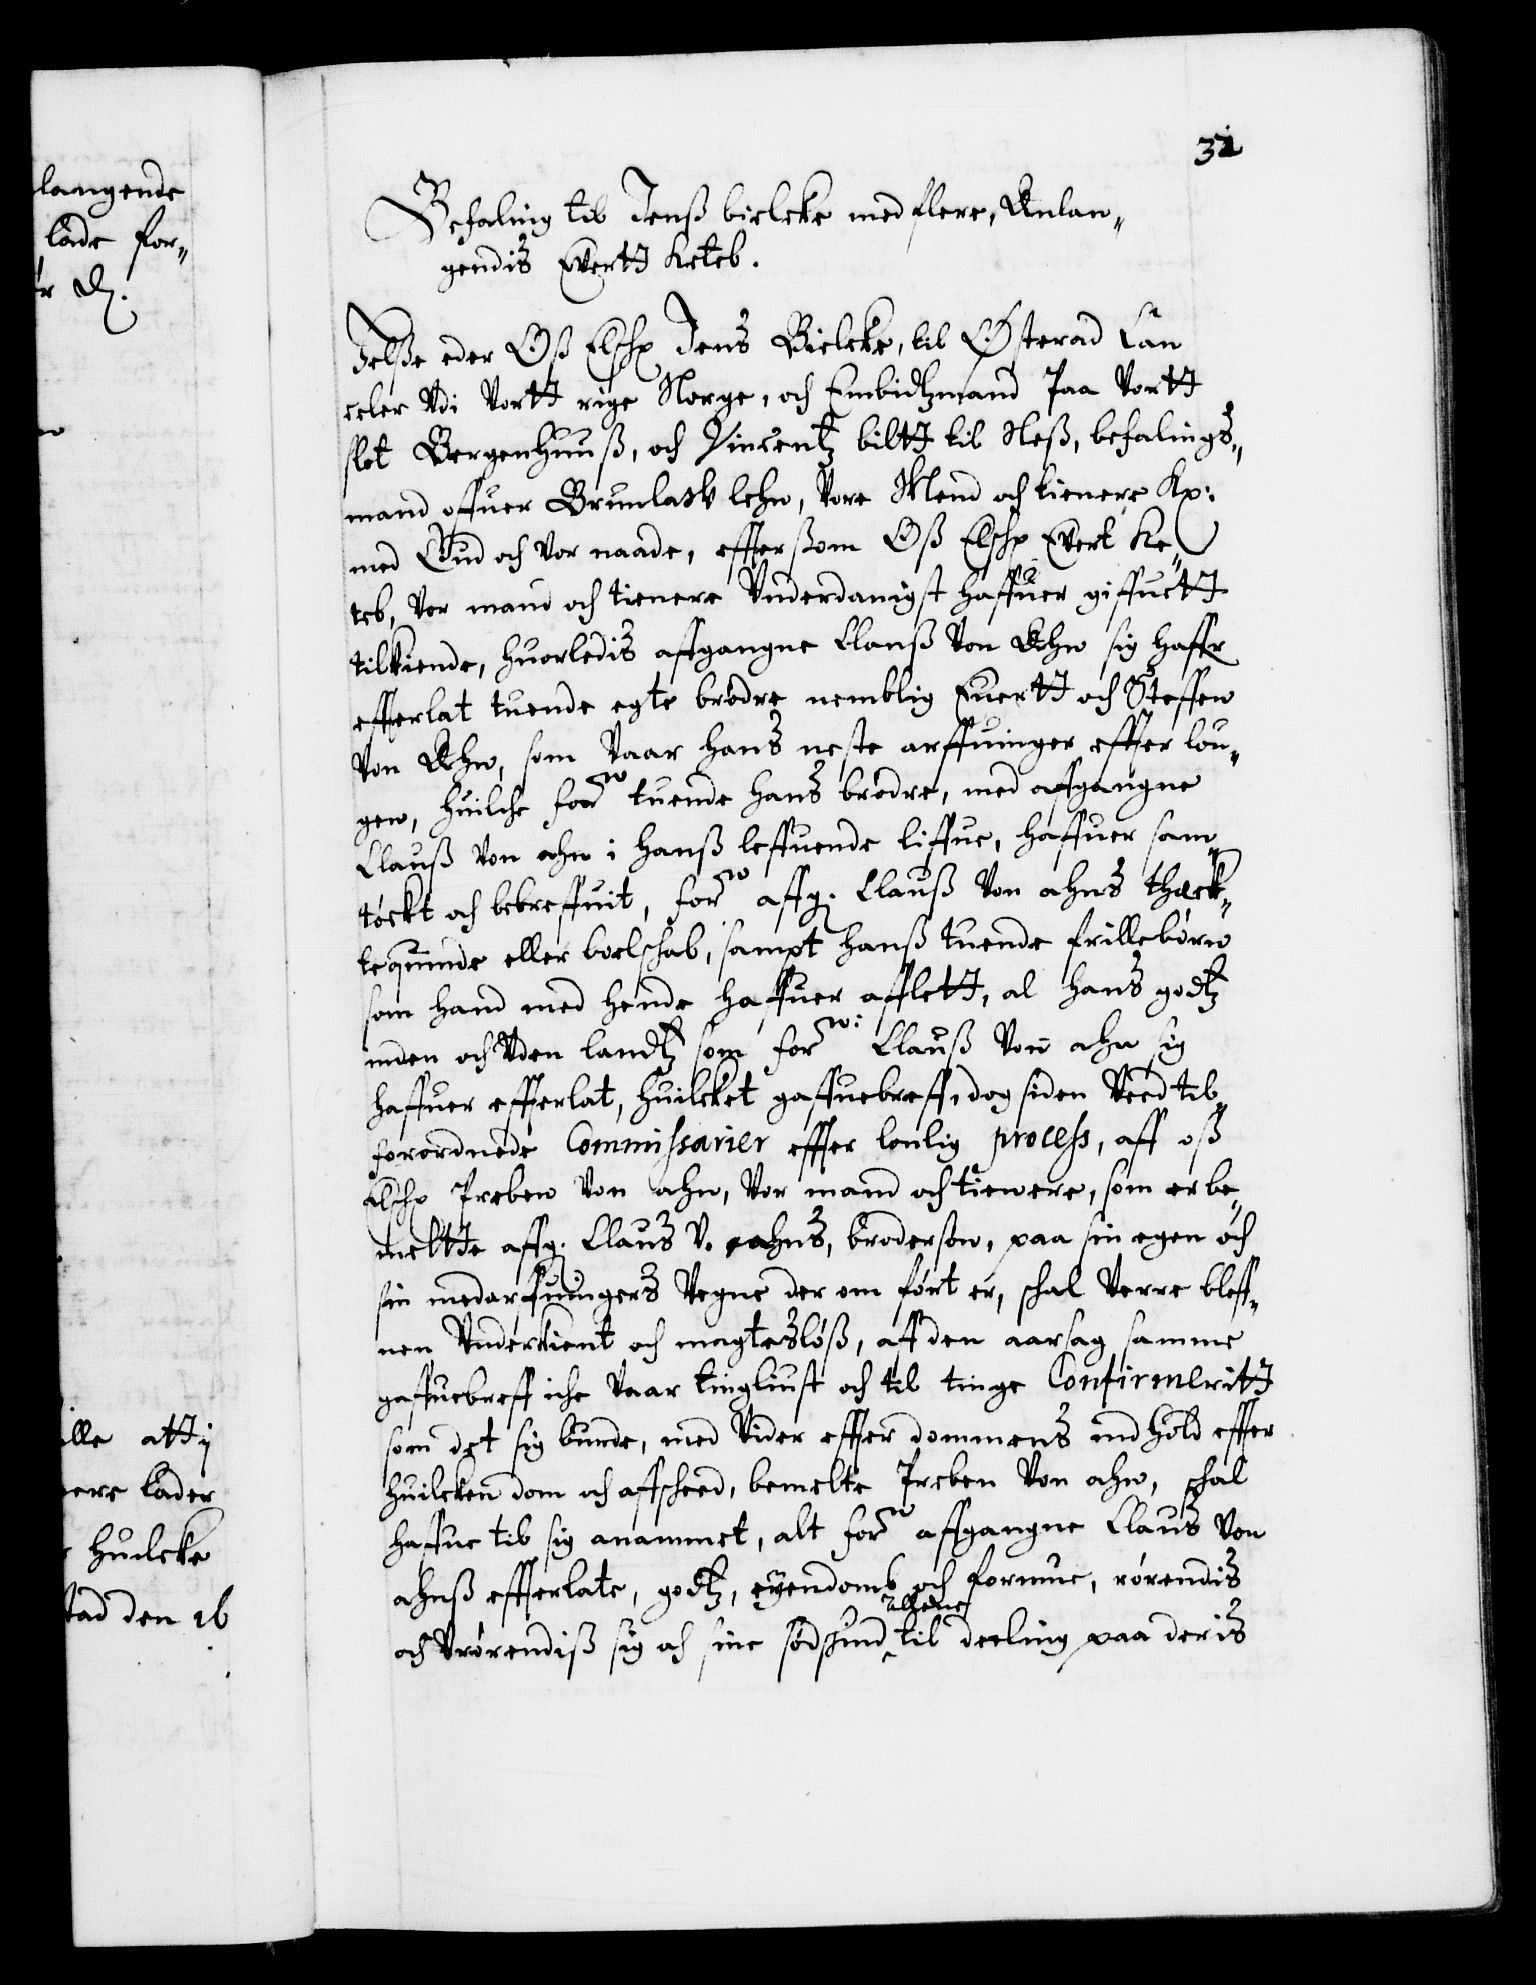 langende
lade for„
32
Befaling til Jenß bielcke med flere, Anlan„
gendis Evertt Keteb.
Helße eder Oß Elschℓ Jens Bielcke, til Østerad Can
celer Udi Vortt rige Norge, och Embidtzmand Paa Vortt
slot Bergenhuuß, och Vincentz biltt til Neß, befalings„
mand offuer Brunlask lehn, Vore Mend och tienere Kℓ:
med Gud och Vor naade, effterßom Oß Elschℓ Evert Ke„
teb, Vor mand och tienere Underdanigst haffuer giffuett
tilkiende, huorledis affgangne Clauß Von Ahn sig haffr
effterlat tuende egte brødre nemblig Euertt och Steffen
Von Ahn, som Vaar hans neste arffuinger effter lou„
gen, huilche forn tuende hans brødre, med affgangne
Clauß Von ahn i hanß leffuende liffue, haffuer sam„
tøckt och bekreffuit, forn affg. Clauß Von ahns thæck„
tequinde eller boelschab, sampt hanß tuende frillebørn
som hand med hende haffuer afflett, al hans godtz
inden och Uden landtz som forn: Clauß Von ahn sig
haffuer effterlat, huilcket gaffuebreff, dog siden Ved til„
forordnede Commissarier effter lonlig process, aff oß
Elschℓ Preben Von ahn, Vor mand och tienere, som er be„
meltte affg. Claus V. ahns, brodersøn, paa sin egen och
sin medarffuingers Vegne der om ført er, schal Verre bleff„
nen Underkient och magtesløß, aff den aarsag samme
gaffuebreff iche Vaar tingliust och til tinge Confirmeritt
som det sig burde, med Vider effter dommens indhold effter
huilcken dom och affscheed, bemelte Preben Von ahn, schal
haffue til sig anammet, alt forn affgangne Claus Von
ahnß effterlate, godtz, eyendomb och formue, rørendis
alleene
och Urørendiß sig och sine sødschind til deeling paa deris
ille att j
ere lader
huilcke
stad den 16